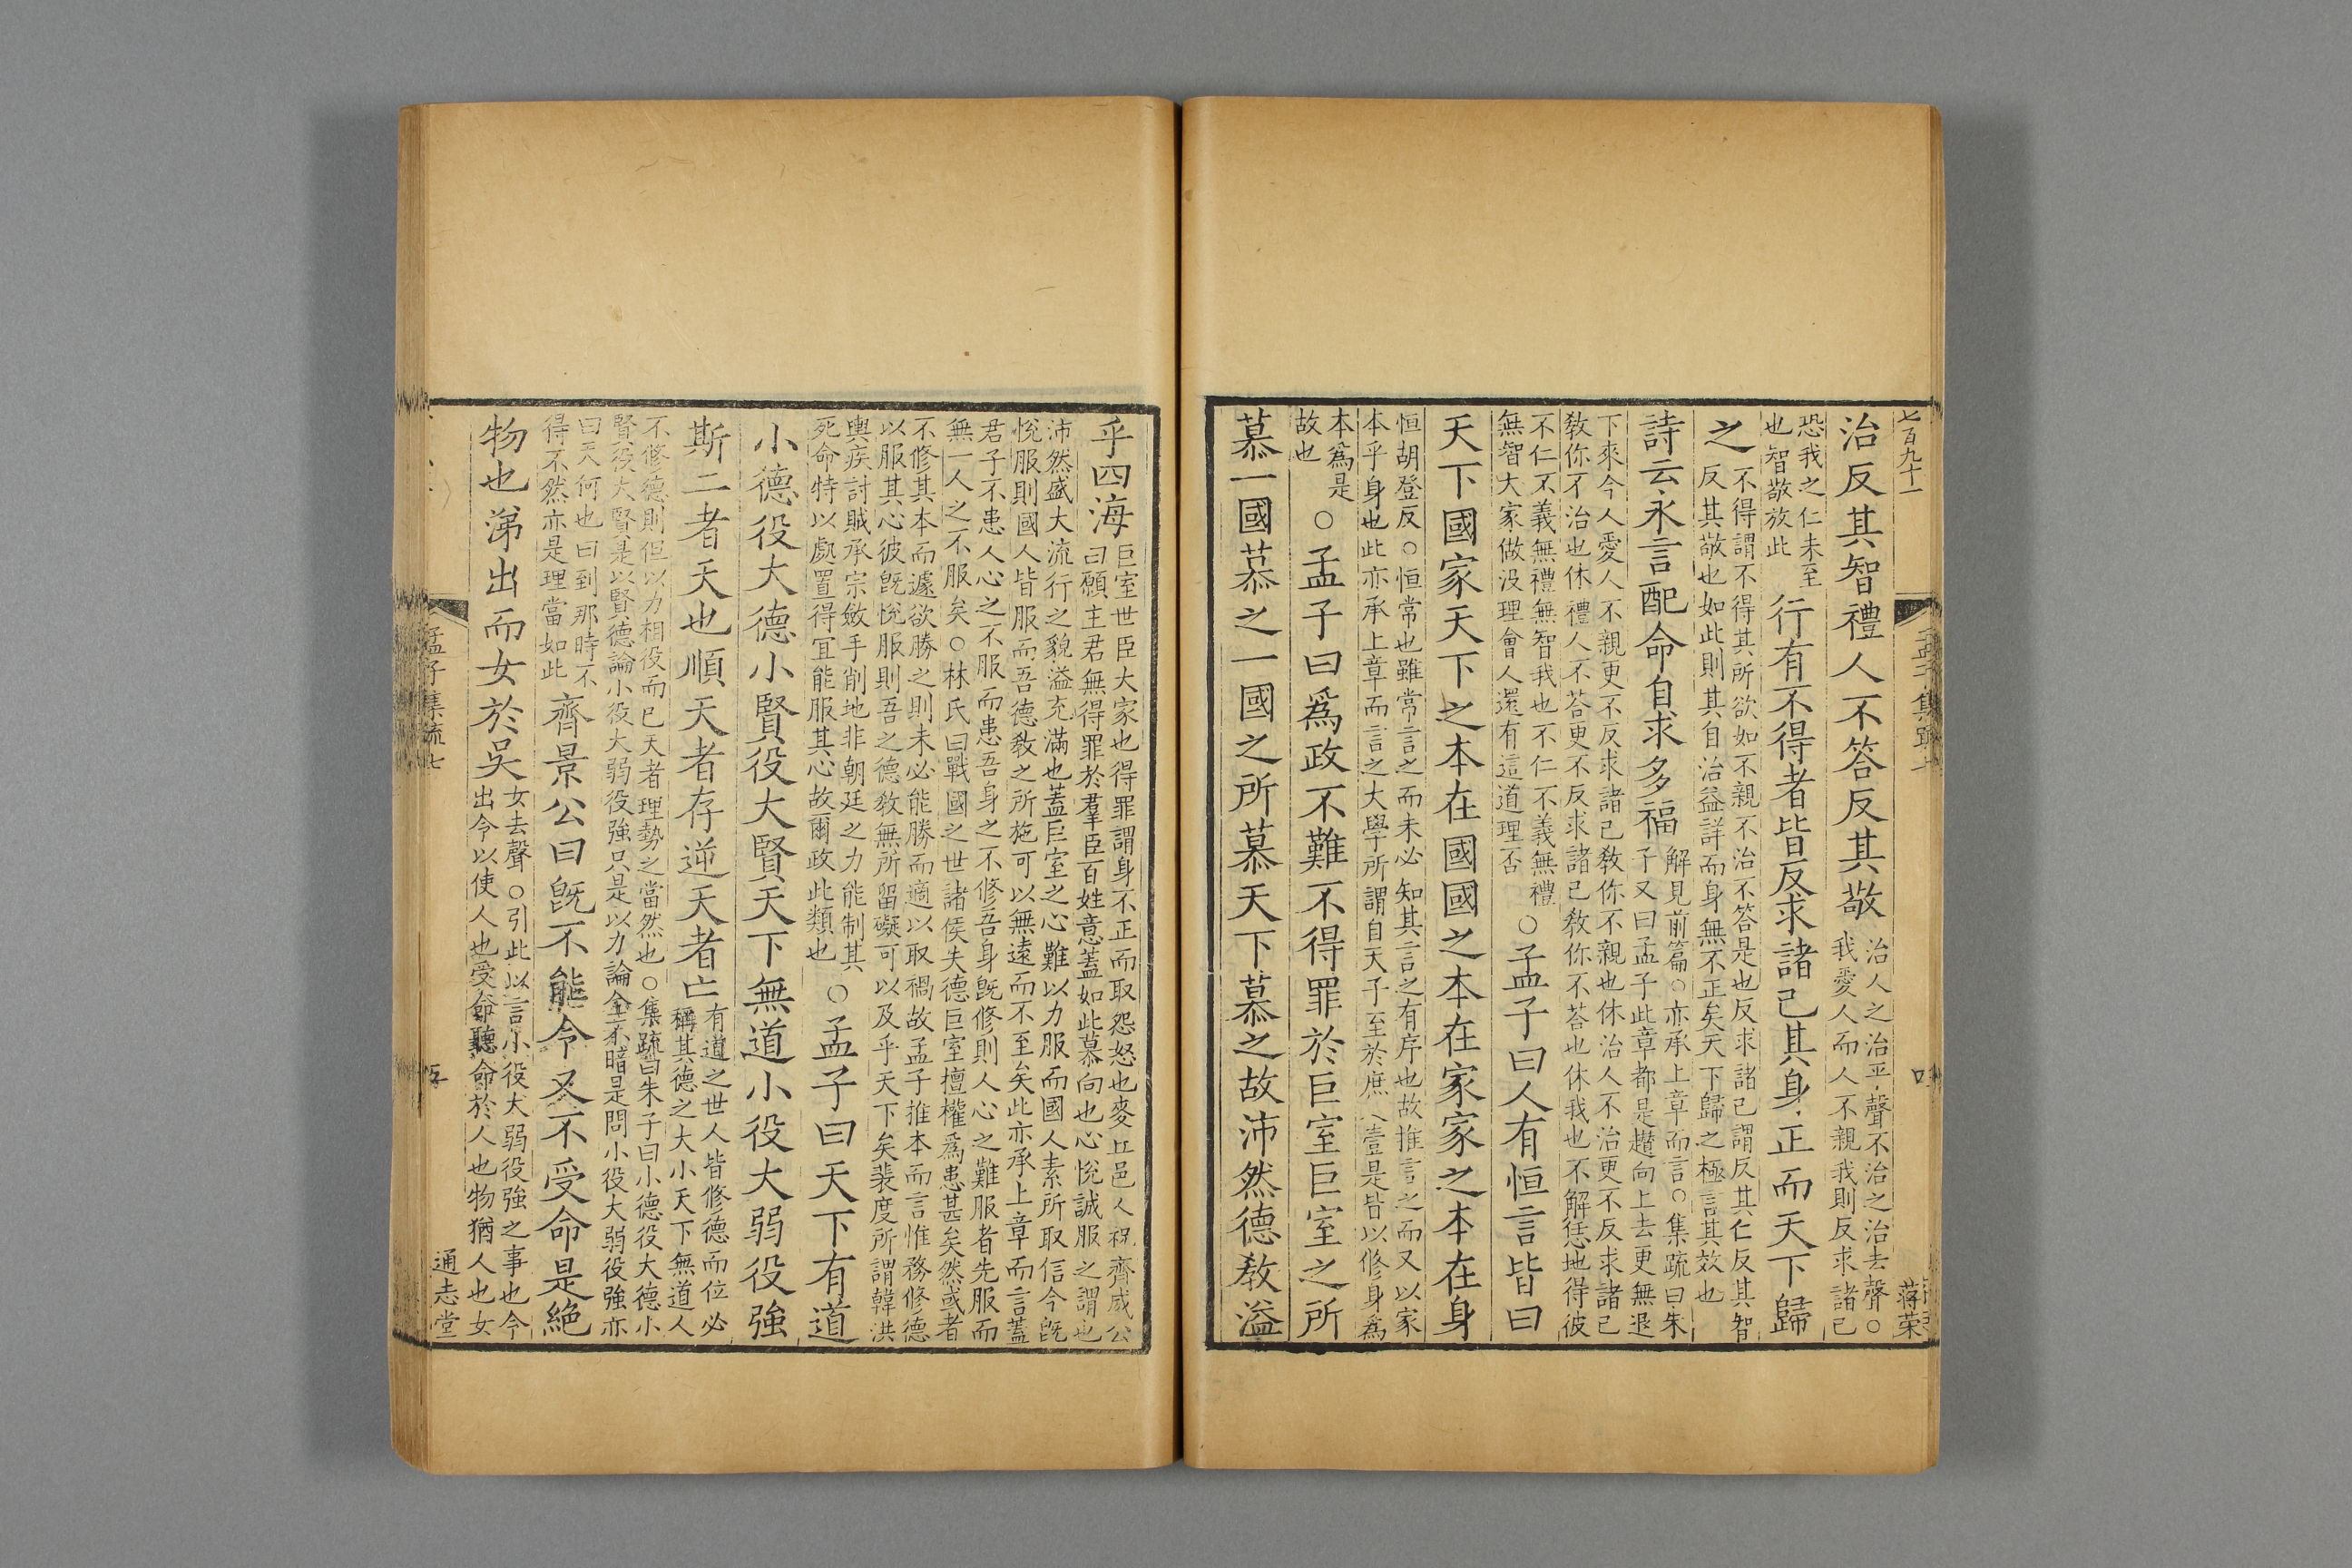 七百九十一
孟子集疏七
四
蔣榮
治反其智禮人不答反其敬
治人之治平聲不治之治去聲○
我愛人而人不親我則反求諸己
恐我之仁未至
也智敬放此
行有不得者皆反求諸己其身正而天下歸
之
不得謂不得其所欲如不親不治不答是也反求諸己謂反其仁反其智
反其敬也如此則其自治益詳而身無不正矣天下歸之極言其效也
詩云永言配命自求多福
解見前篇○亦承上章而言○集疏曰朱
子又曰孟子此章都是趲向上去更無退
下來今人愛人不親更不反求諸己敎你不親也休治人不治更不反求諸己
敎你不治也休禮人不答更不反求諸己敎你不荅也休我也不解恁地得彼
不仁不義無禮無智我也不仁不義無禮
無智大家做没理會人還有這道理否
○孟子曰人有恒言皆曰
天下國家天下之本在國國之本在家家之本在身
恒胡登反○恒常也雖常言之而未必知其言之有序也故推言之而又以家
本乎身也此亦承上章而言之大學所謂自天子至於庶人壹是皆以修身爲
本爲是
故也
○孟子曰爲政不難不得罪於巨室巨室之所
慕一國慕之一國之所慕天下慕之故沛然德敎溢
乎四海
巨室世臣大家也得罪謂身不正而取怨怒也麥丘邑人祝齊成公
曰願主君無得罪於羣臣百姓意蓋如此慕向也心悅誠服之謂也
沛然盛大流行之貌溢充滿也蓋巨室之心難以力服而國人素所取信今旣
悅服則國人皆服而吾德敎之所施可以無遠而不至矣此亦承上章而言蓋
君子不患人心之不服而患吾身之不修吾身旣修則人心之難服者先服而
無一人之不服矣○林氏曰戰國之世諸侯失德巨室擅權爲患甚矣然或者
不修其本而遽欲勝之則未必能勝而適以取禍故孟子推本而言惟務修德
以服其心彼旣悅服則吾之德敎無所留礙可以及乎天下矣裴度所謂韓洪
輿疾討賊承宗斂手削地非朝廷之力能制其
死命特以處置得宜能服其心故爾政此類也
○孟子曰天下有道
小德役大德小賢役大賢天下無道小役大弱役強
斯二者天也順天者存逆天者亡
有道之世人皆修德而位必
稱其德之大小天下無道人
不修德則但以力相役而已天者理勢之當然也○集疏曰朱子曰小德役大德小
賢役大賢是以賢德論小役大弱役強只是以力論全不暗是問小役大弱役強亦
曰天何也曰到那時不
得不然亦是理當如此
齊景公曰旣不能令又不受命是絶
物也涕出而女於吳
女去聲○引此以言小役大弱役強之事也今
出令以使人也受命聽命於人也物猶人也女
孟子集疏七
五
通志堂